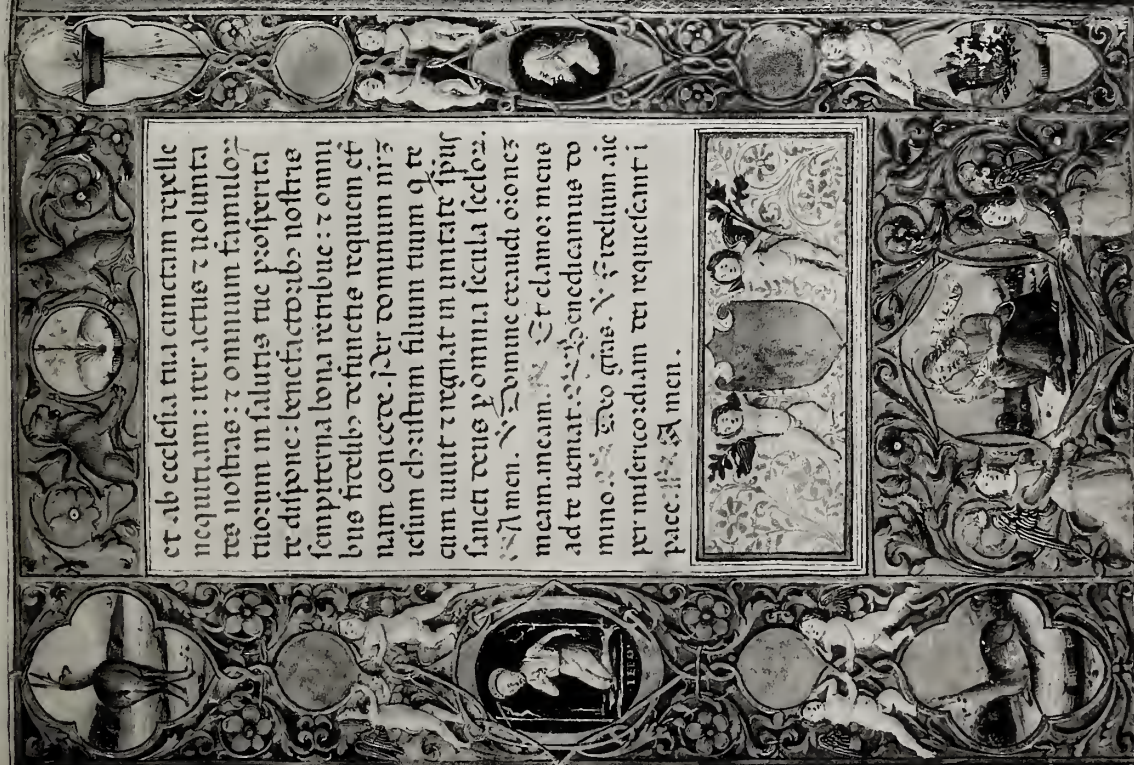 et ab ecclesia tua cunctam repelle
nequitiam: iter actus ⁊ uolunta
tes nostras: ⁊ omnium famuloꝝ
tuorum in salutis tue prosperita
te dispone: benefactoribꝫ nostris
sempiterna bona retribue: ⁊ omni
bus fidelibꝫ defunctis requiem et̉
nam concede. Per dominum nr̄ꝫ
iesum christum filium tuum q̄ te
cum uiuit ⁊ regnat in unitate sp̄us
sancti deus p̱ omnia secula seculoꝝ.
Amen. ℣ Domine exaudi or̄onem
meam. meam. Et clamor: meus
ad te ueniat: Benedicamus do
mino. Deo gr̄as. ℣ Fidelium aīe
per misericordiam dei requiescant i
pace: Amen.